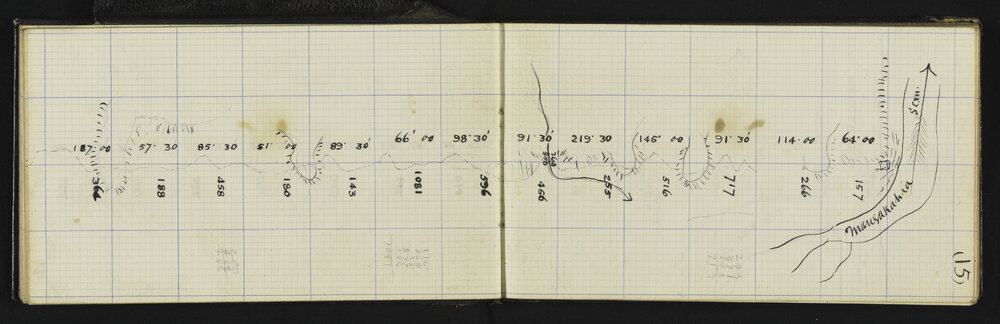 187.00 57.30 85.30 51.00 89.30' 66'.00 98.30' 91.30' 219.30 145'.00 91.30' 114.00 64.00
364 188 458 180 143 1081 596 466 255 516 717 266 157
340 360
5 cm.
Mangakahia
(15)